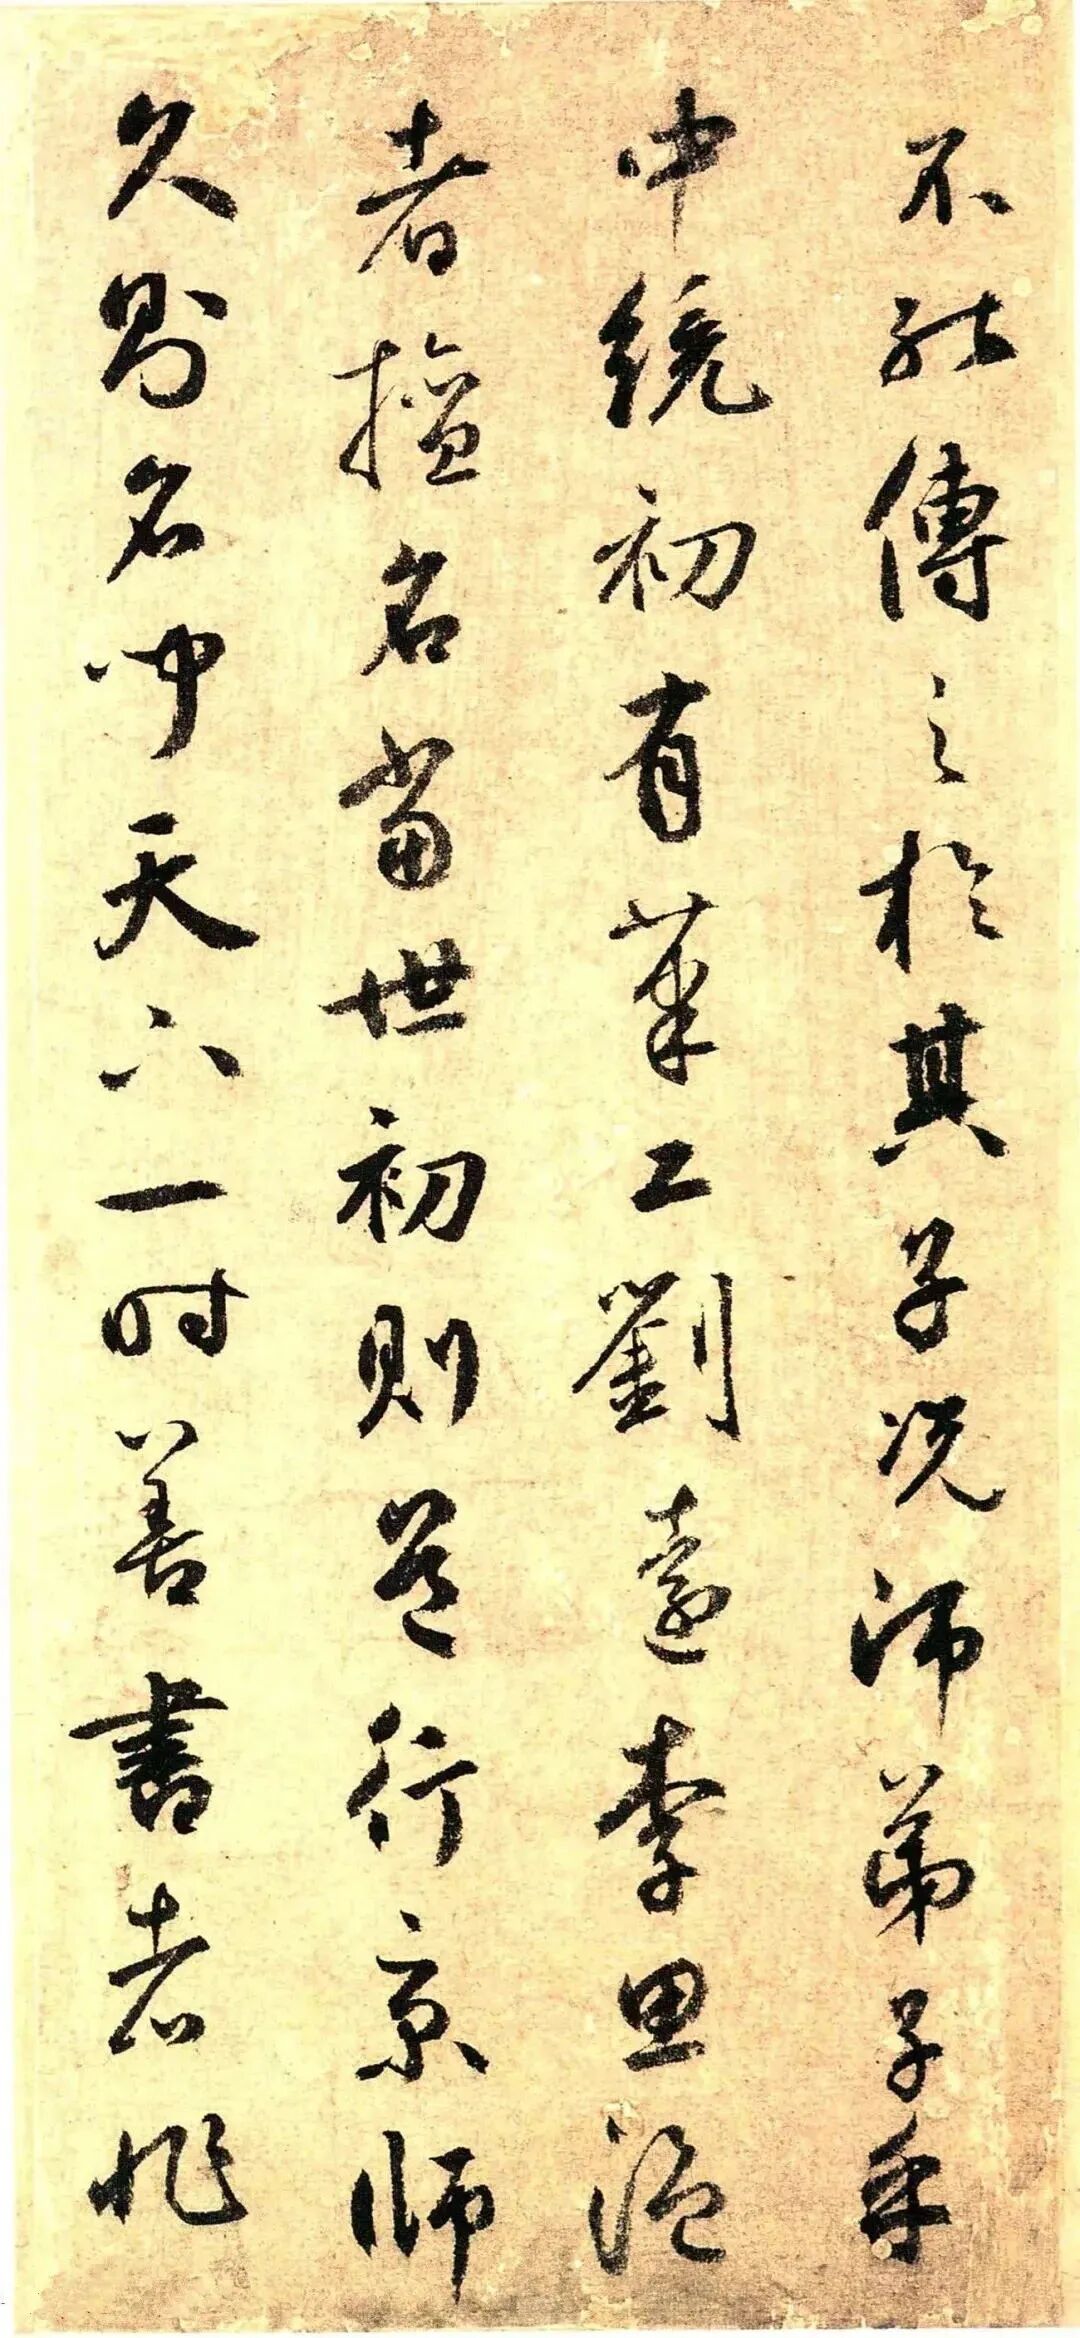 不能傳之於其子况師弟子乎
中統初有筆工劉遠李思温
者擅名當世初則行京師
久則名聞天下一時善書者非